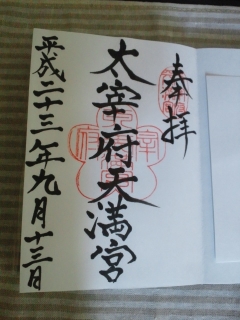 奉拝
太宰府天満宮
平成二十三年九月十三日